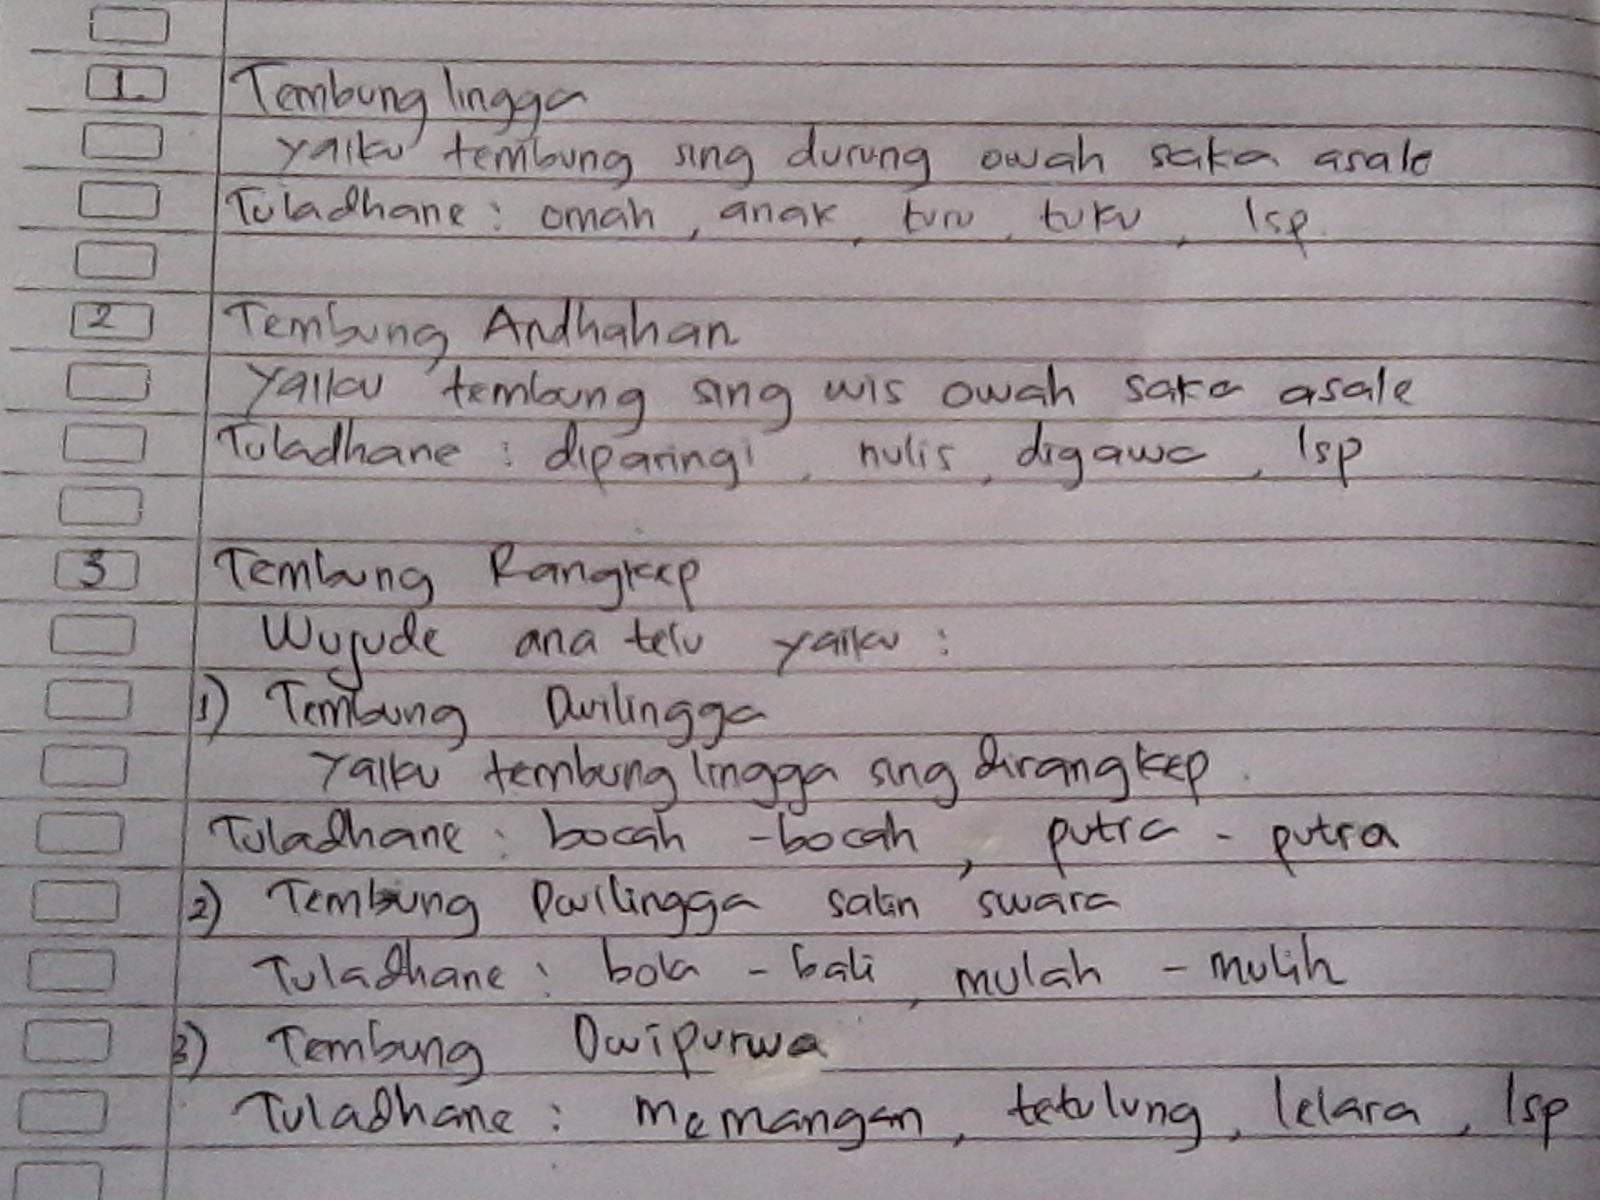 1. Tembung lingga
yaiku tembung sing durung owah saka asale
Tuladhane : omah, anak, turu, tuku, lsp.
2 Tembung Andhahan
yaiku tembung sing wis owah saka asale
Tuladhane : diparingi, nulis, digawa, lsp
3 Tembung Rangkep
Wujude ana telu yaiku :
1) Tembung Dwilingga
Yaiku tembung lingga sing dirangkep.
Tuladhane : bocah - bocah, putra - putra
2) Tembung Dwilingga salin swara
Tuladhane : bola - bali, mulah - mulih
3) Tembung Dwipurwa
Tuladhane : memangan, tetulung, lelara, lsp